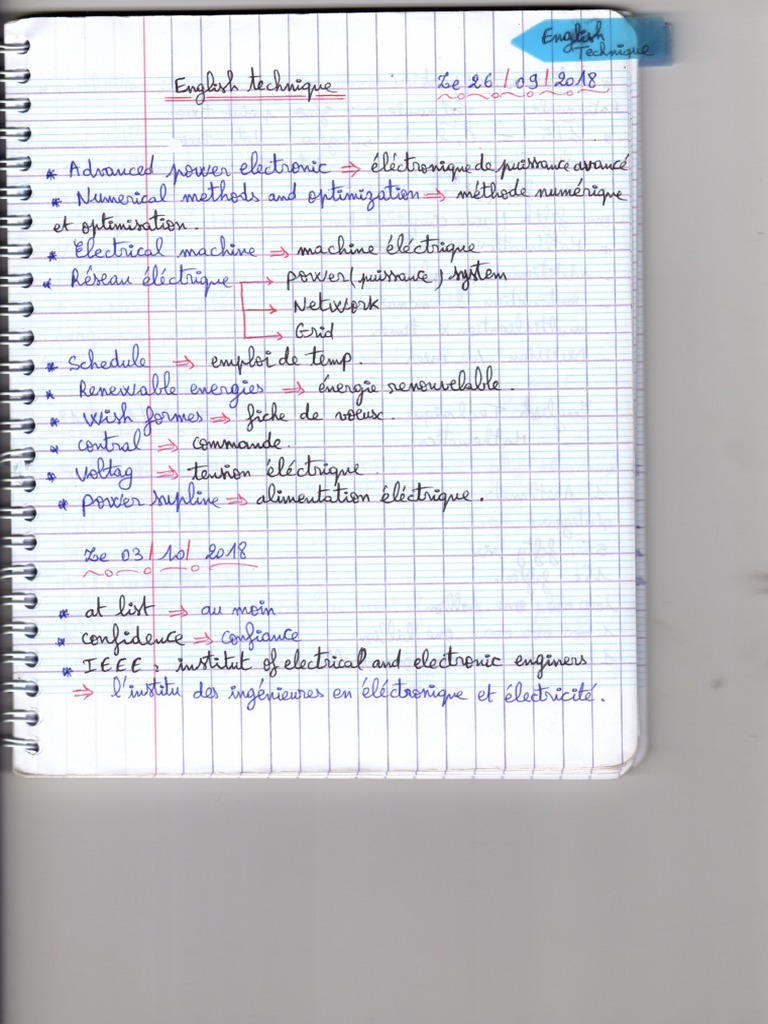 English
Technique
English technique
Le 26/09/2018
* Advanced power electronic ⇒ éléctronique de puissance avancé
* Numerical methods and optimization ⇒ méthode numérique
et optimisation.
* Electrical machine ⇒ machine éléctrique
* Réseau éléctrique → power (puissance) system
→ Network
→ Grid
* Schedule ⇒ emploi de temp.
* Renewable energies ⇒ énergie renouvelable.
* wish formes ⇒ fiche de voeux.
* control ⇒ commande.
* voltag ⇒ tension éléctrique
* power supline ⇒ alimentation éléctrique.
Le 03/10/2018
* at list ⇒ au moin
* confidence ⇒ confiance
* IEEE : institut of electrical and electronic enginers
⇒ l'institu des ingénieures en éléctronique et électricité.